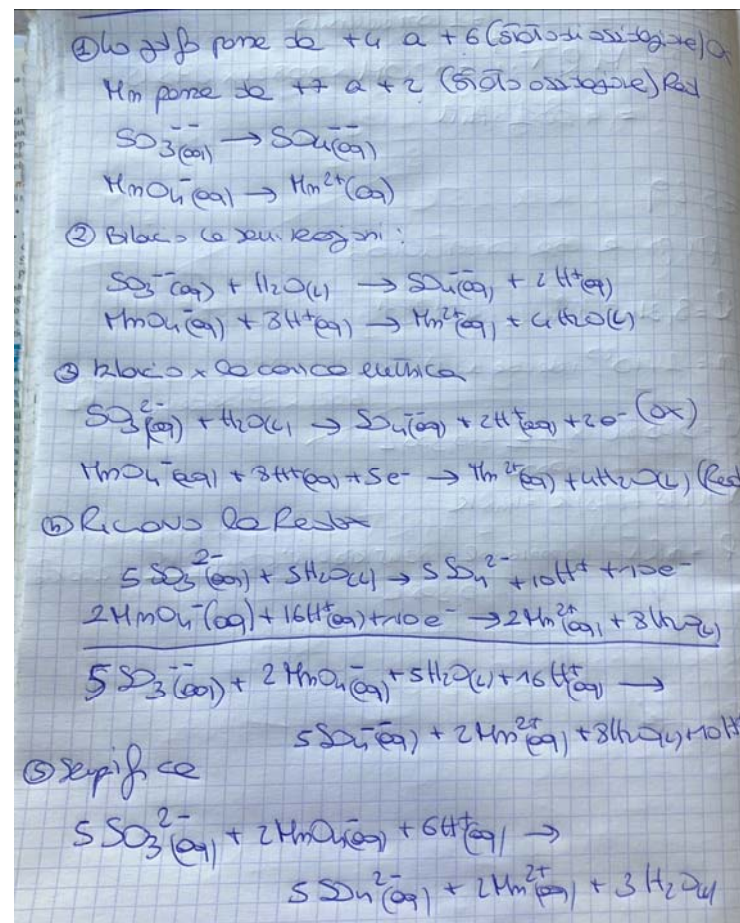 ① Lo zolfo passa da +4 a +6 (stato di ossidazione) Ox
Mn passa da +7 a +2 (stato ossidazione) Red
SO₃⁻⁻(aq) → SO₄⁻⁻(aq)
MnO₄⁻(aq) → Mn²⁺(aq)
② Bilancio le semireazioni:
SO₃⁻⁻(aq) + H₂O(l) → SO₄⁻⁻(aq) + 2H⁺(aq)
MnO₄⁻(aq) + 8H⁺(aq) → Mn²⁺(aq) + 4H₂O(l)
③ bilancio x la carica elettrica
SO₃²⁻(aq) + H₂O(l) → SO₄⁻⁻(aq) + 2H⁺(aq) + 2e⁻ (Ox)
MnO₄⁻(aq) + 8H⁺(aq) + 5e⁻ → Mn²⁺(aq) + 4H₂O(l) (Red
Ricavo la Redox
5SO₃²⁻(aq) + 5H₂O(l) → 5SO₄²⁻ + 10H⁺ + 10e⁻
2MnO₄⁻(aq) + 16H⁺(aq) + 10e⁻ → 2Mn²⁺(aq) + 8H₂O(l)
5SO₃⁻⁻(aq) + 2MnO₄⁻(aq) + 5H₂O(l) + 16H⁺(aq) →
5SO₄⁻⁻(aq) + 2Mn²⁺(aq) + 8H₂O(l) + 10H⁺
⑤
5SO₃²⁻(aq) + 2MnO₄⁻(aq) + 6H⁺(aq) →
5SO₄²⁻(aq) + 2Mn²⁺(aq) + 3H₂O(l)